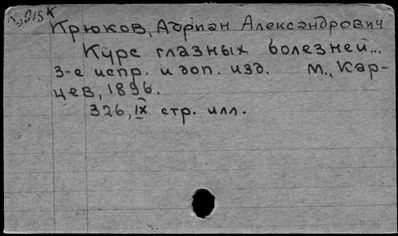 Крюков, Адриан Александрович
Курс глазных болезней...
3-е испр. и доп. изд. М., Кар-
цев, 1896.
326, IX стр. илл.